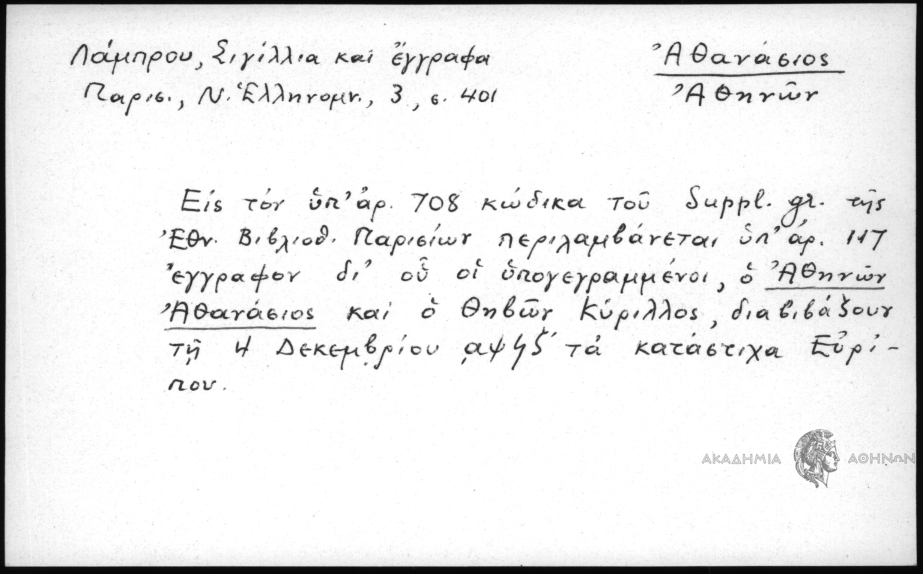 Λάμπρου, Σιγίλλια καὶ ἔγγραφα
Παρισ., Ν. Ἑλληνομν., 3, σ. 401
Ἀθανάσιος
Ἀθηνῶν
Εἰς τόν ὑπ' ἀρ. 708 κώδικα τοῦ Suppl. gr. τῆς
Ἐθν. Βιβλιοθ. Παρισίων περιλαμβάνεται ὑπ' ἀρ. 117
ἔγγραφον δι' οὗ οἱ ὑπογεγραμμένοι, ὁ Ἀθηνῶν
Ἀθανάσιος καί ὁ Θηβῶν Κύριλλος, διαβιβάζουν
τῇ 4 Δεκεμβρίου ͵αψϟζʹ τά κατάστιχα Εὐρί-
που.
ΑΚΑΔΗΜΙΑ ΑΘΗΝΩΝ